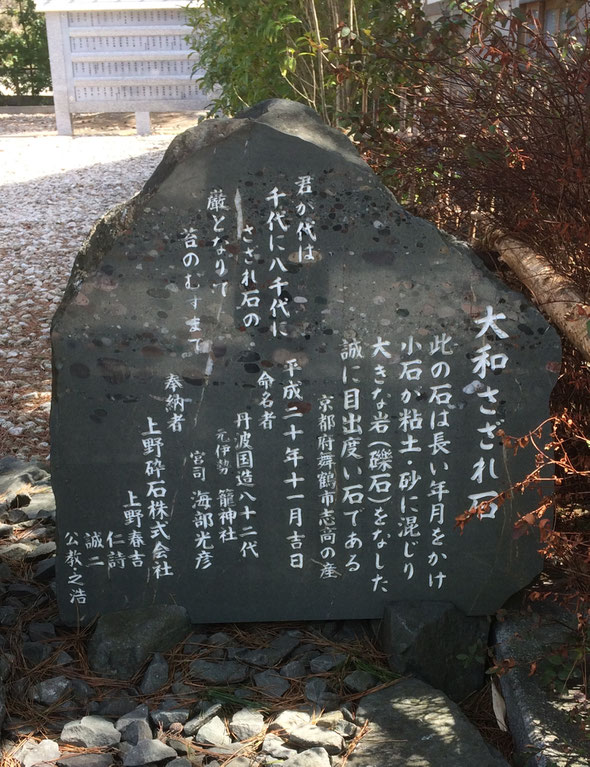 大和さざれ石
此の石は長い年月をかけ
小石が粘土・砂に混じり
大きな岩（礫石）をなした
誠に目出度い石である
京都府舞鶴市志高の産
平成二十年十一月吉日
命名者
丹波国造八十二代
元伊勢 籠神社
宮司 海部光彦
奉納者
上野砕石株式会社
上野春吉
仁詩
誠二
公教之浩
君が代は
千代に八千代に
さざれ石の
巌となりて
苔のむすまで